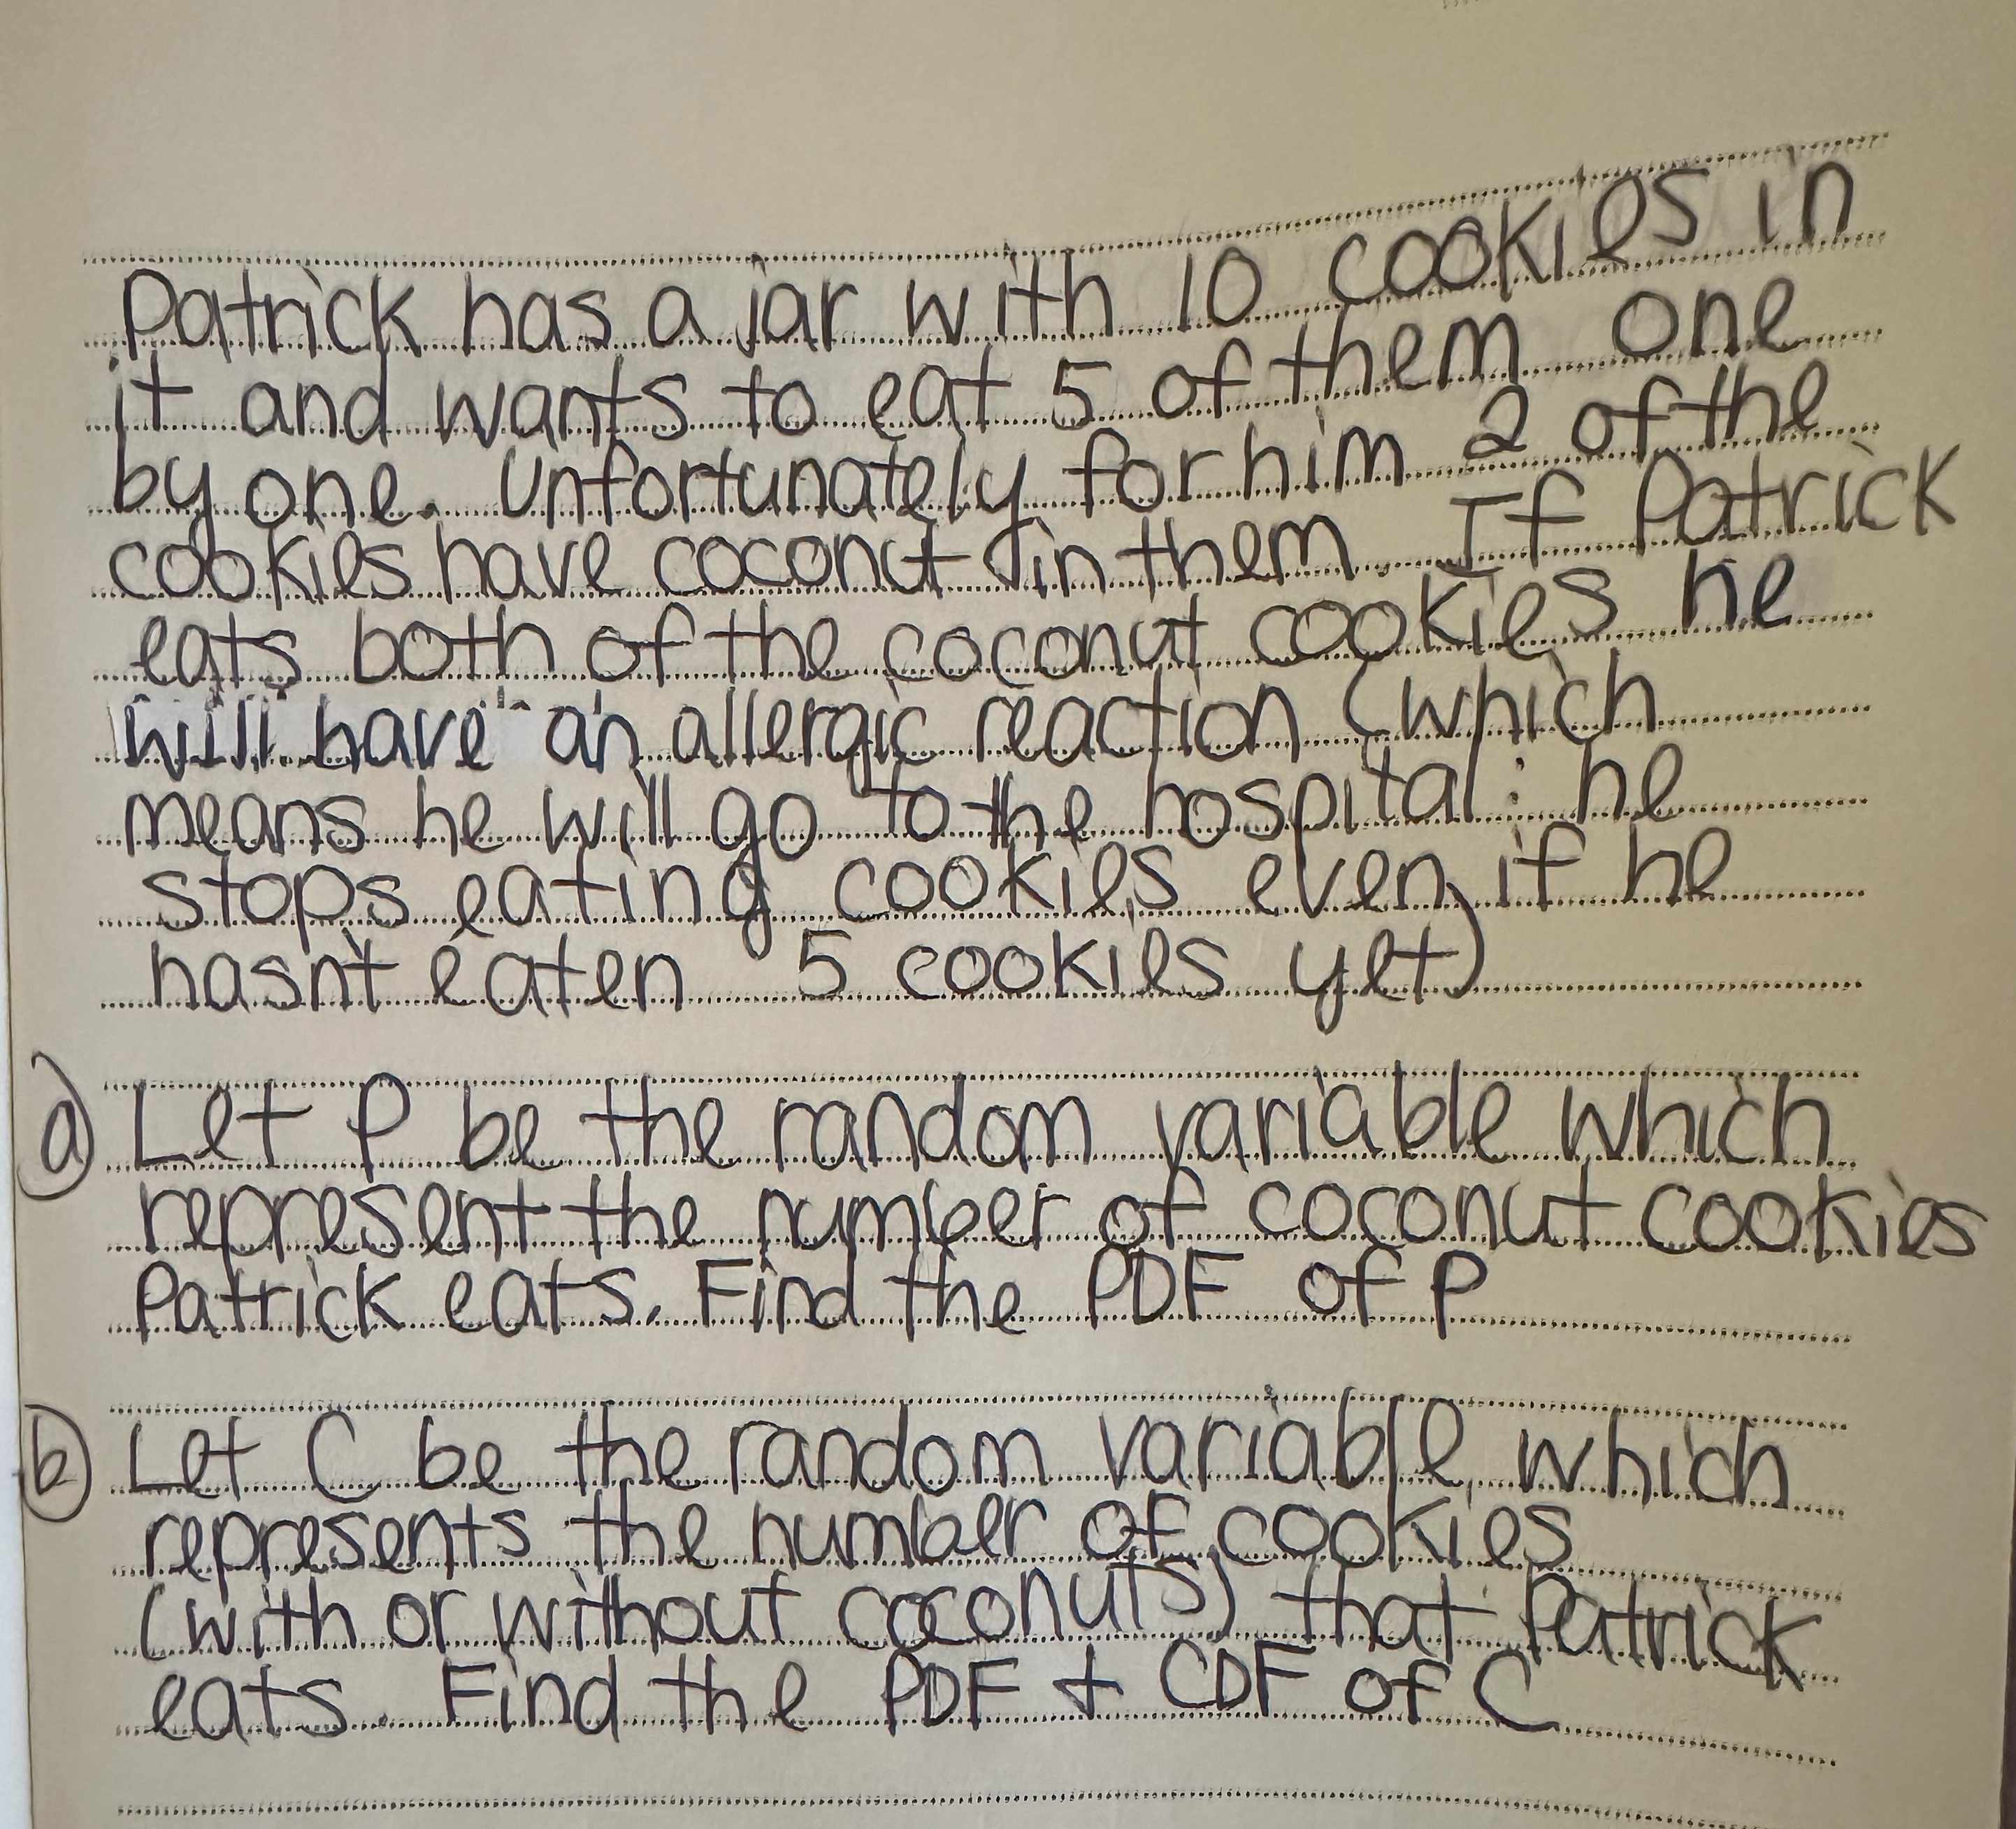 Patrick has a jar with 10 cookies in
it and wants to eat 5 of them one
by one. Unfortunately for him 2 of the
cookies have coconut in them. If Patrick
eats both of the coconut cookies he
will have an allergic reaction (which
means he will go to the hospital: he
stops eating cookies even if he
hasn't eaten 5 cookies yet)
a) Let P be the random variable which
represent the number of coconut cookies
Patrick eats. Find the PDF of P
b) Let C be the random variable which
represents the number of cookies
(with or without coconuts) that Patrick
eats. Find the PDF + CDF of C